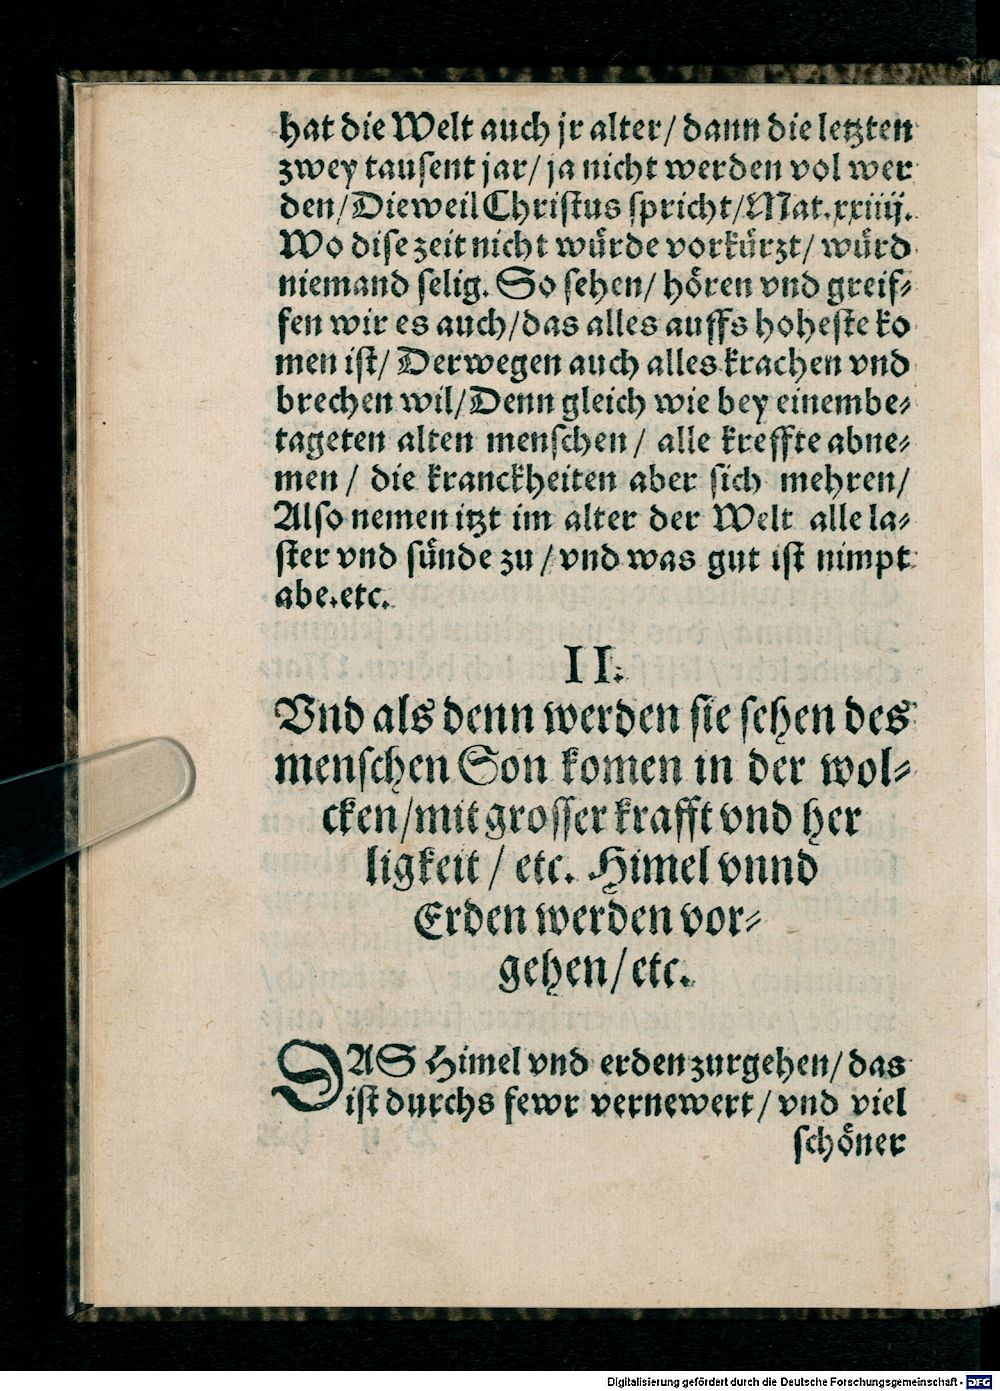 hat die Welt auch jr alter/ dann die letzten
zwey tausent jar/ ja nicht werden vol wer
den/ Dieweil Christus spricht/ Mat. xxiiij.
Wo dise zeit nicht würde vorkürzt/ würd
niemand selig. So sehen/ hören vnd greif⸗
fen wir es auch/ das alles auffs hoheste ko
men ist/ Derwegen auch alles krachen vnd
brechen wil/ Denn gleich wie bey einem be⸗
tageten alten menschen/ alle kreffte abne⸗
men/ die kranckheiten aber sich mehren/
Also nemen itzt im alter der Welt alle la⸗
ster vnd sünde zu/ vnd was gut ist nimpt
abe. etc.
II.
Vnd als denn werden sie sehen des
menschen Son komen in der wol⸗
cken/ mit grosser krafft vnd her
ligkeit/ etc. Himel vnnd
Erden werden vor⸗
gehen/ etc.
DAS Himel vnd erden zurgehen/ das
ist durchs fewr vernewert/ vnd viel
schöner
Digitalisierung gefördert durch die Deutsche Forschungsgemeinschaft - DFG